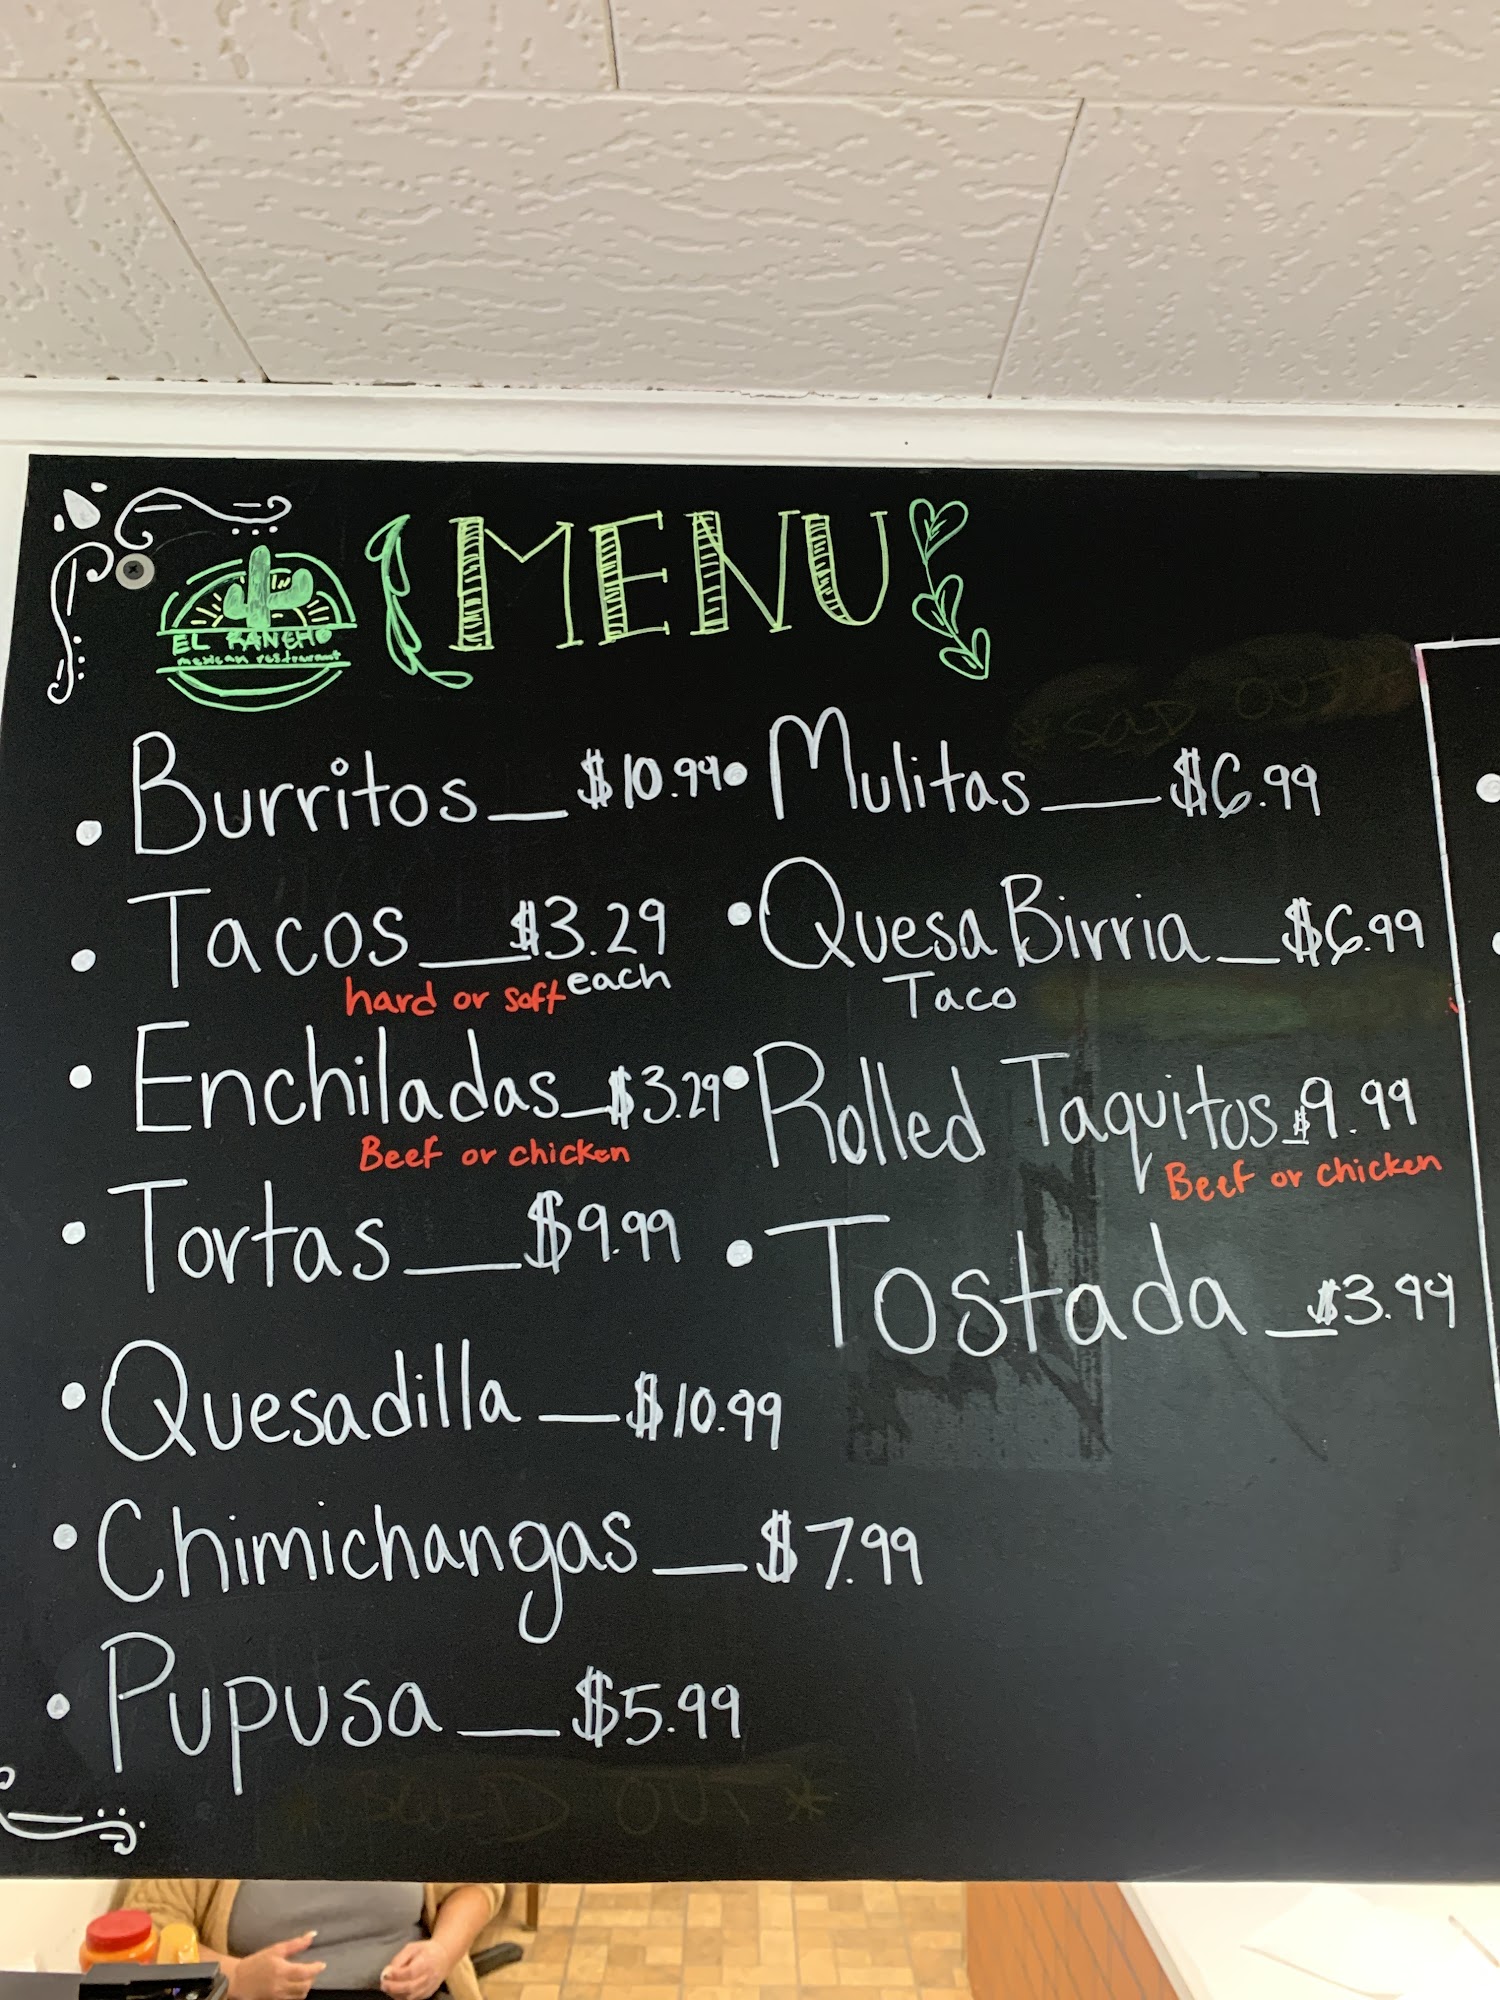 MENU
EL RANCHO
mexican restraurant
• Burritos __ $10.99
• Tacos __ $3.29
each
hard or soft
• Enchiladas _ $3.29
Beef or chicken
• Tortas __ $9.99
• Quesadilla __ $10.99
• Chimichangas __ $7.99
• Pupusa __ $5.99
* SOLD OUT *
* SOLD OUT *
• Mulitas __ $6.99
• Quesa Birria __ $6.99
Taco
• Rolled Taquitos _ $9.99
Beef or chicken
• Tostada __ $3.99